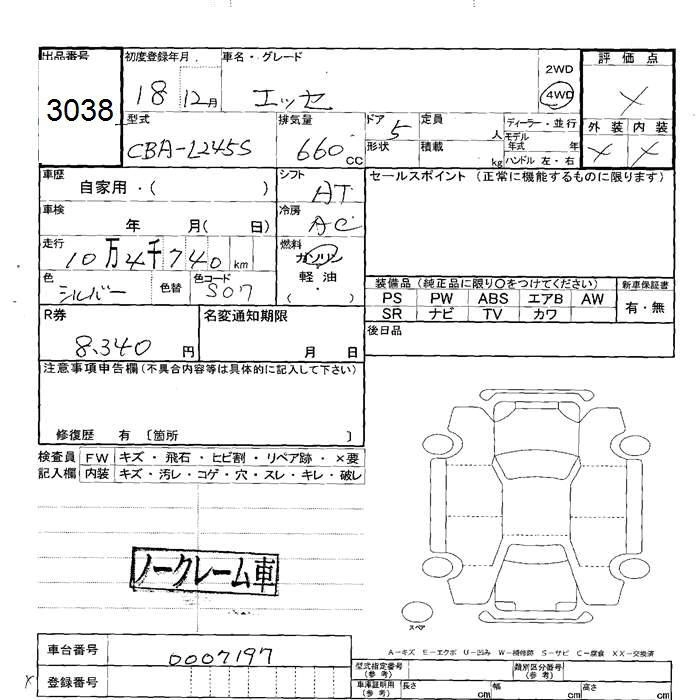 出品番号
3038
初度登録年月
18 12月
車名・グレード
エッセ
2WD
4WD
評価点
外装 内装
型式
CBA-L245S
排気量
660 cc
ドア 5
形状
定員 人
積載 kg
ディーラー・並行
モデル年式 年
ハンドル 左・右
車歴
自家用・( )
シフト
AT
セールスポイント (正常に機能するものに限ります)
車検
年 月( 日)
冷房
AC
走行
10万4千740 km
燃料
ガソリン
軽油
( ・ )
色
シルバー
色替
色コード
S07
装備品 (純正品に限り○をつけてください)
新車保証書
PS PW ABS エアB AW
有・無
SR ナビ TV カワ
R券
8.340 円
名変通知期限
月 日
後日品
注意事項申告欄(不具合内容等は具体的に記入して下さい)
修復歴 有 〔箇所 〕
検査員 FW キズ・飛石・ヒビ割・リペア跡・×要
記入欄 内装 キズ・汚レ・コゲ・穴・スレ・キレ・破レ
ノークレーム車
スペア
A－キズ E－エクボ U－凹み W－補修跡 S－サビ C－腐食 XX－交換済
車台番号
0007197
登録番号
型式指定番号
(参考)
類別区分番号
(参考)
車庫証明用
(参考)
長さ cm
幅 cm
高さ cm